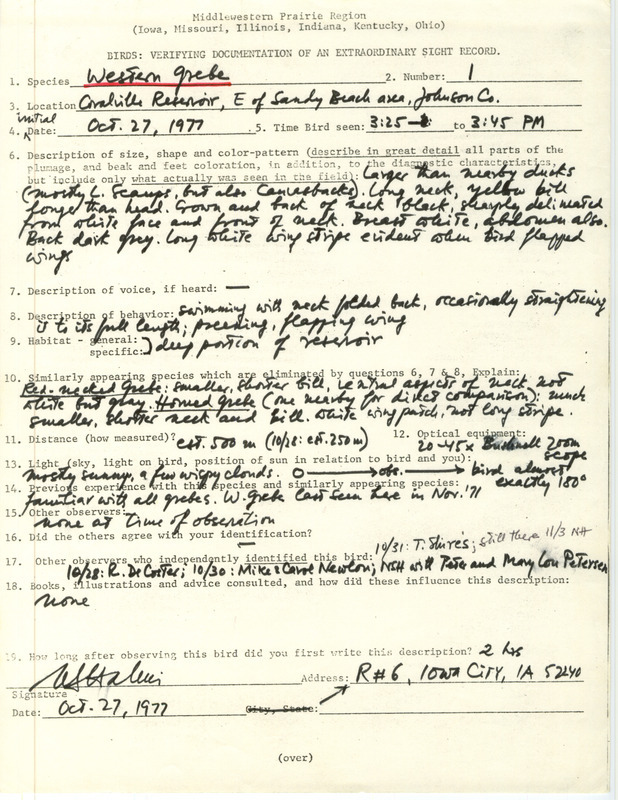 Middlewestern Prairie Region
(Iowa, Missouri, Illinois, Indiana, Kentucky, Ohio)
BIRDS: VERIFYING DOCUMENTATION OF AN EXTRAORDINARY SIGHT RECORD.
1. Species Western Grebe 2. Number: 1
3. Location Coralville Reservoir, E of Sandy Beach area, Johnson Co.
initial
4. Date: Oct. 27, 1977 5. Time Bird seen: 3:25 to 3:45 PM
6. Description of size, shape and color-pattern (describe in great detail all parts of the
plumage, and beak and feet coloration, in addition, to the diagnostic characteristics,
but include only what actually was seen in the field): Larger than nearby ducks
(mostly L. Scaups, but also Canvasbacks). Long neck, yellow bill
longer than head. Crown and back of neck black, sharply delineated
from white face and front of neck. Breast white, abdomen also.
Back dark grey. Long white wing stripe evident when bird flapped
wings
7. Description of voice, if heard: —
8. Description of behavior: swimming with neck folded back, occasionally straightening
it to its full length; preening, flapping wing
9. Habitat - general:
specific: ) deep portion of reservoir
10. Similarly appearing species which are eliminated by questions 6, 7 & 8, Explain:
Red-necked Grebe: smaller, shorter bill, ventral aspects of neck not
white but gray. Horned Grebe (one nearby for direct comparison): much
smaller, shorter neck and bill. White wing patch, not long stripe.
11. Distance (how measured)? est. 500 m (10/28: est. 250 m) 12. Optical equipment:
20-45x Bushnell zoom
scope
13. Light (sky, light on bird, position of sun in relation to bird and you):
mostly sunny, a few wispy clouds. O → obs. → bird almost
exactly 180°
14. Previous experience with this species and similarly appearing species:
familiar with all grebes. W. Grebe last seen here in Nov. '71
15. Other observers:
none at time of observation
16. Did the others agree with your identification?
17. Other observers who independently identified this bird: 10/31: T. Shires; still there 11/3 NH
10/28: R. DeCoster; 10/30: Mike & Carol Newlon; NSH with Peter and Mary Lou Petersen
18. Books, illustrations and advice consulted, and how did these influence this description:
none
19. How long after observing this bird did you first write this description? 2 hrs
Signature Address: R#6, Iowa City, IA 52240
Date: Oct. 27, 1977 City, State:
(over)